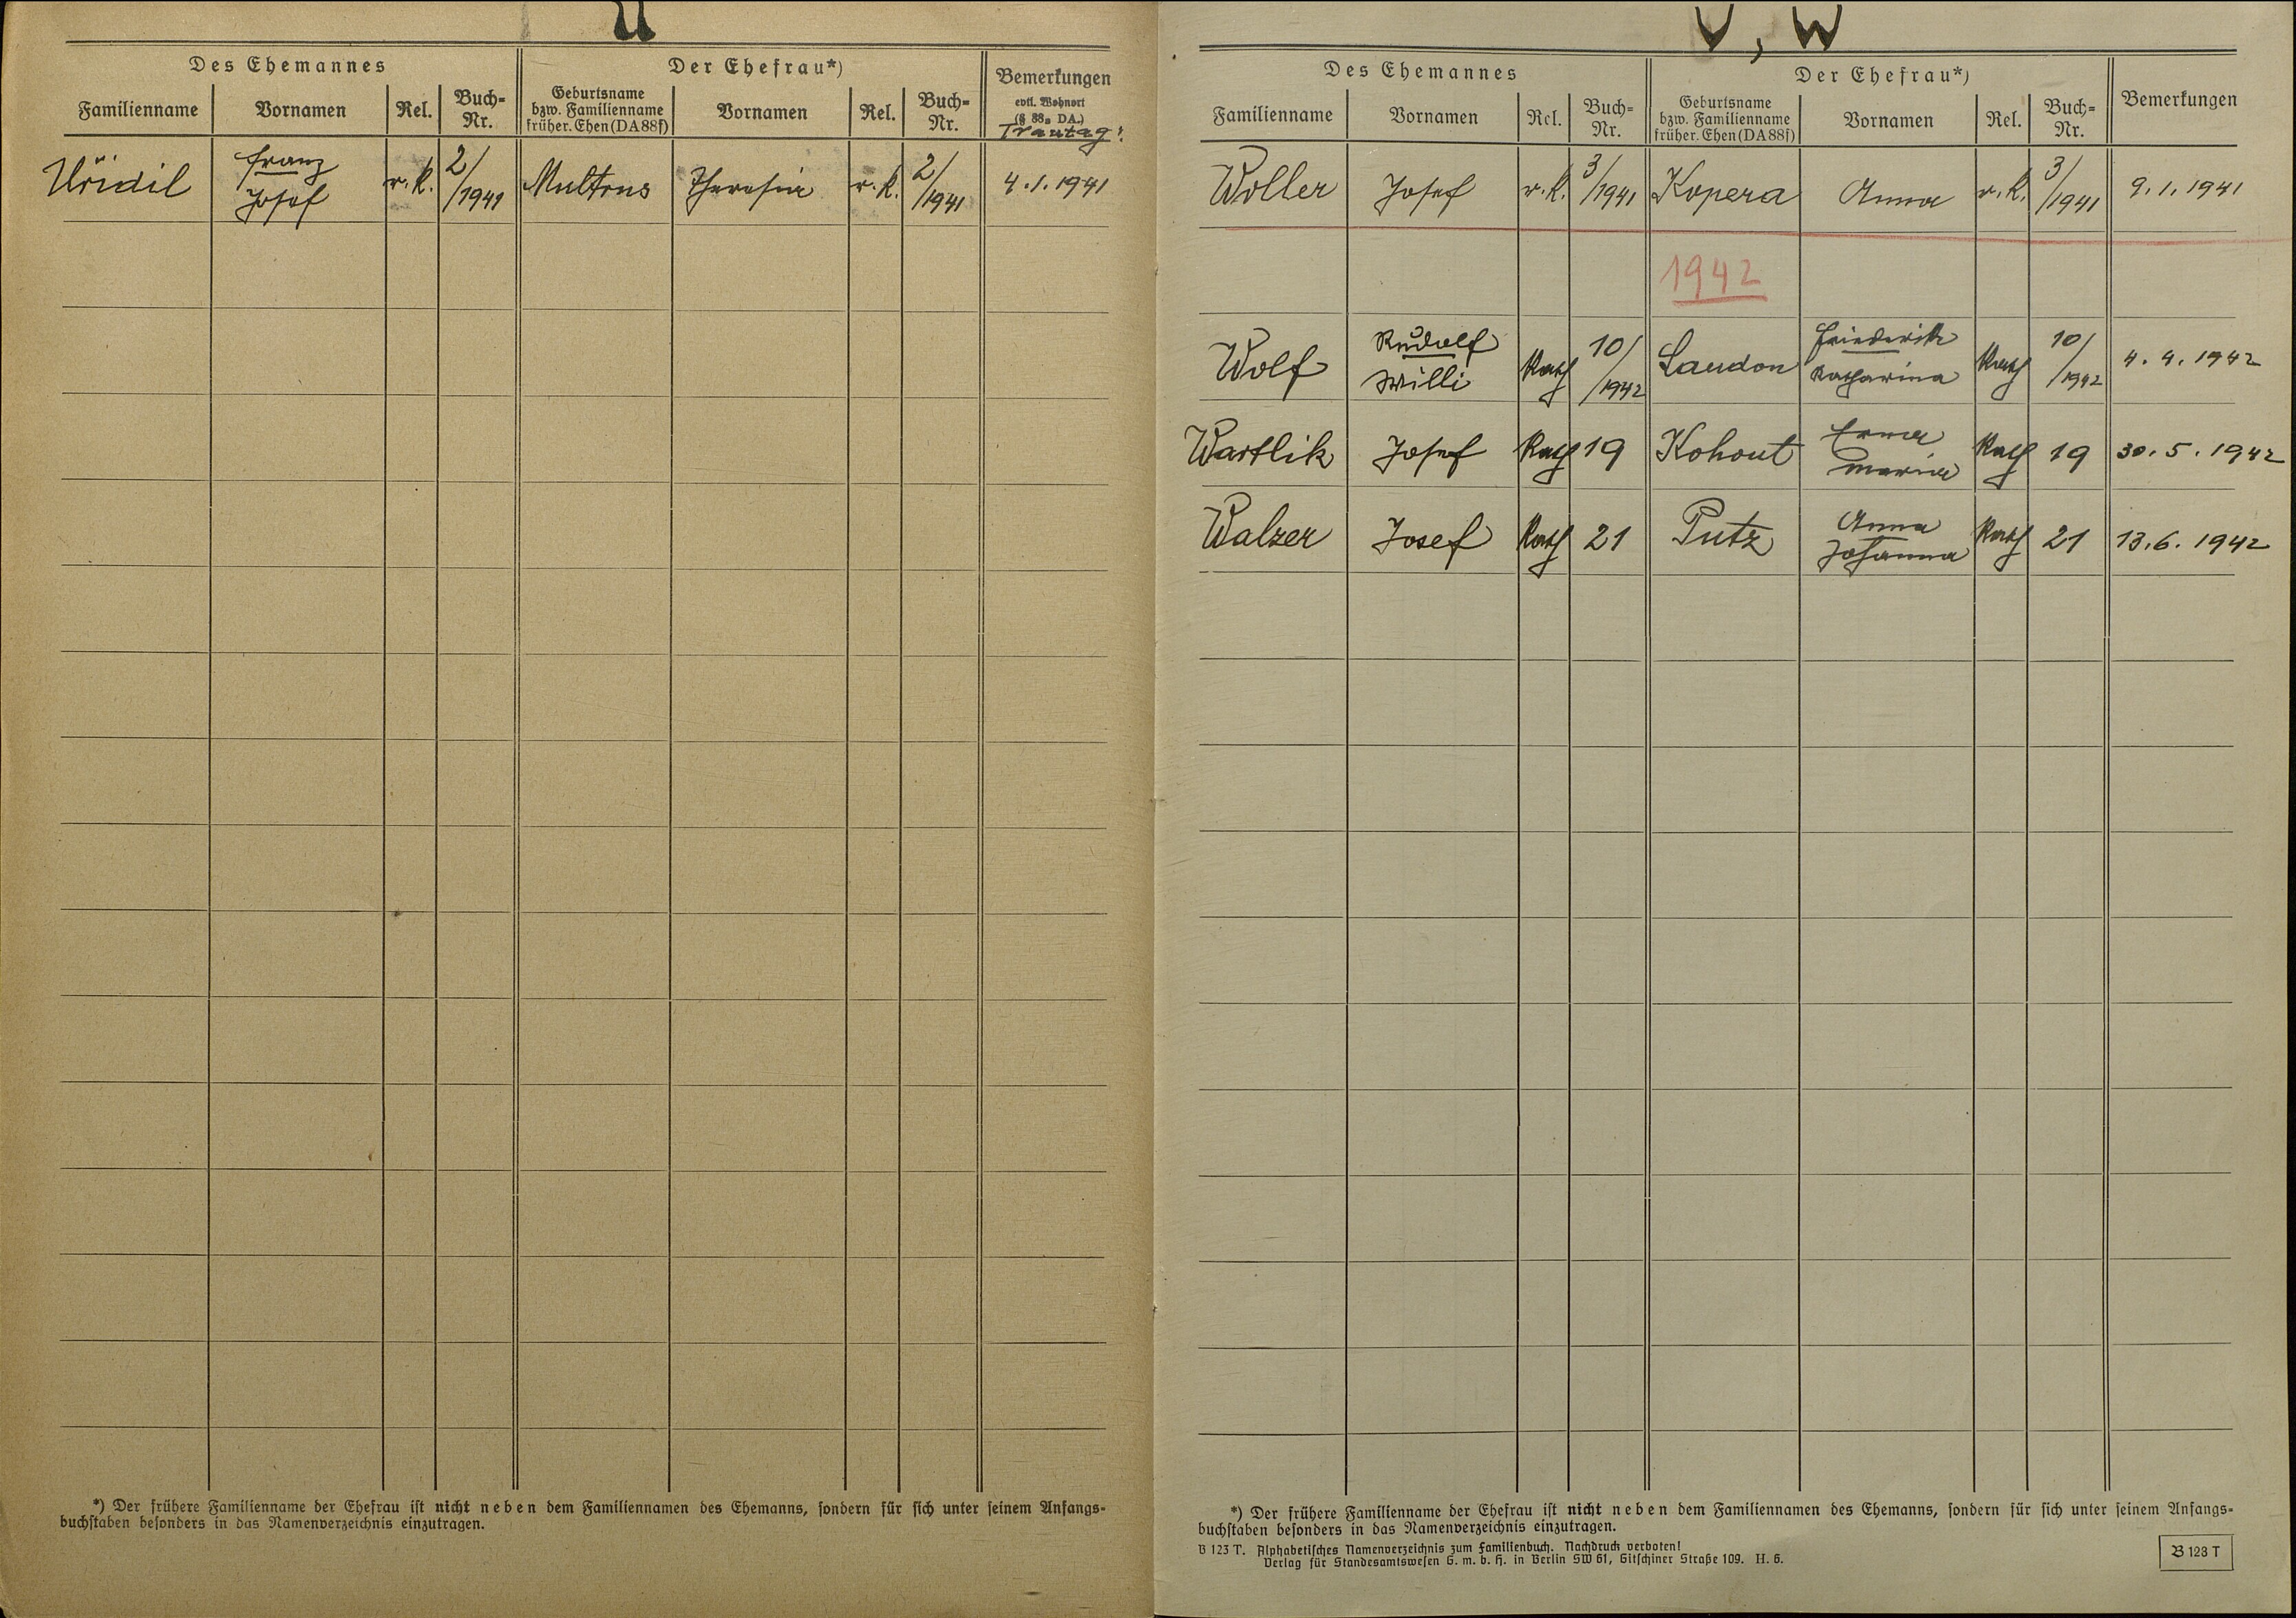 U
Des Ehemannes
Der Ehefrau*)
Bemerkungen
evtl. Wohnort
(§ 88a DA.)
Trautag:
Familienname
Vornamen
Rel.
Buch-
Nr.
Geburtsname
bzw. Familienname
früher. Ehen (DA 88f)
Vornamen
Rel.
Buch-
Nr.
Uřidil
Franz
Josef
r. k.
2/
/1941
Theresia
r. k.
2/
/1941
4. 1. 1941
*) Der frühere Familienname der Ehefrau ist nicht neben dem Familiennamen des Ehemanns, sondern für sich unter seinem Anfangs-
buchstaben besonders in das Namenverzeichnis einzutragen.
V, W
Des Ehemannes
Der Ehefrau*)
Bemerkungen
Familienname
Vornamen
Rel.
Buch-
Nr.
Geburtsname
bzw. Familienname
früher. Ehen (DA 88f)
Vornamen
Rel.
Buch-
Nr.
Woller
Josef
r. k.
3/
/1941
Kopera
Anna
r. k.
3/
/1941
9. 1. 1941
1942
Wolf
Rudolf
Willi
Kath
10/
/1942
Laudon
Friederike
Katharina
Kath
10/
/1942
4. 4. 1942
Wartlik
Josef
Kath
19
Kohout
Erna
Maria
Kath
19
30. 5. 1942
Walzer
Josef
Kath
21
Putz
Anna
Johanna
Kath
21
13. 6. 1942
*) Der frühere Familienname der Ehefrau ist nicht neben dem Familiennamen des Ehemanns, sondern für sich unter seinem Anfangs-
buchstaben besonders in das Namenverzeichnis einzutragen.
B 123 T. Alphabetisches Namenverzeichnis zum Familienbuch. Nachdruck verboten!
Verlag für Standesamtswesen G. m. b. H. in Berlin SW 61, Gitschiner Straße 109. H. 6.
B 123 T